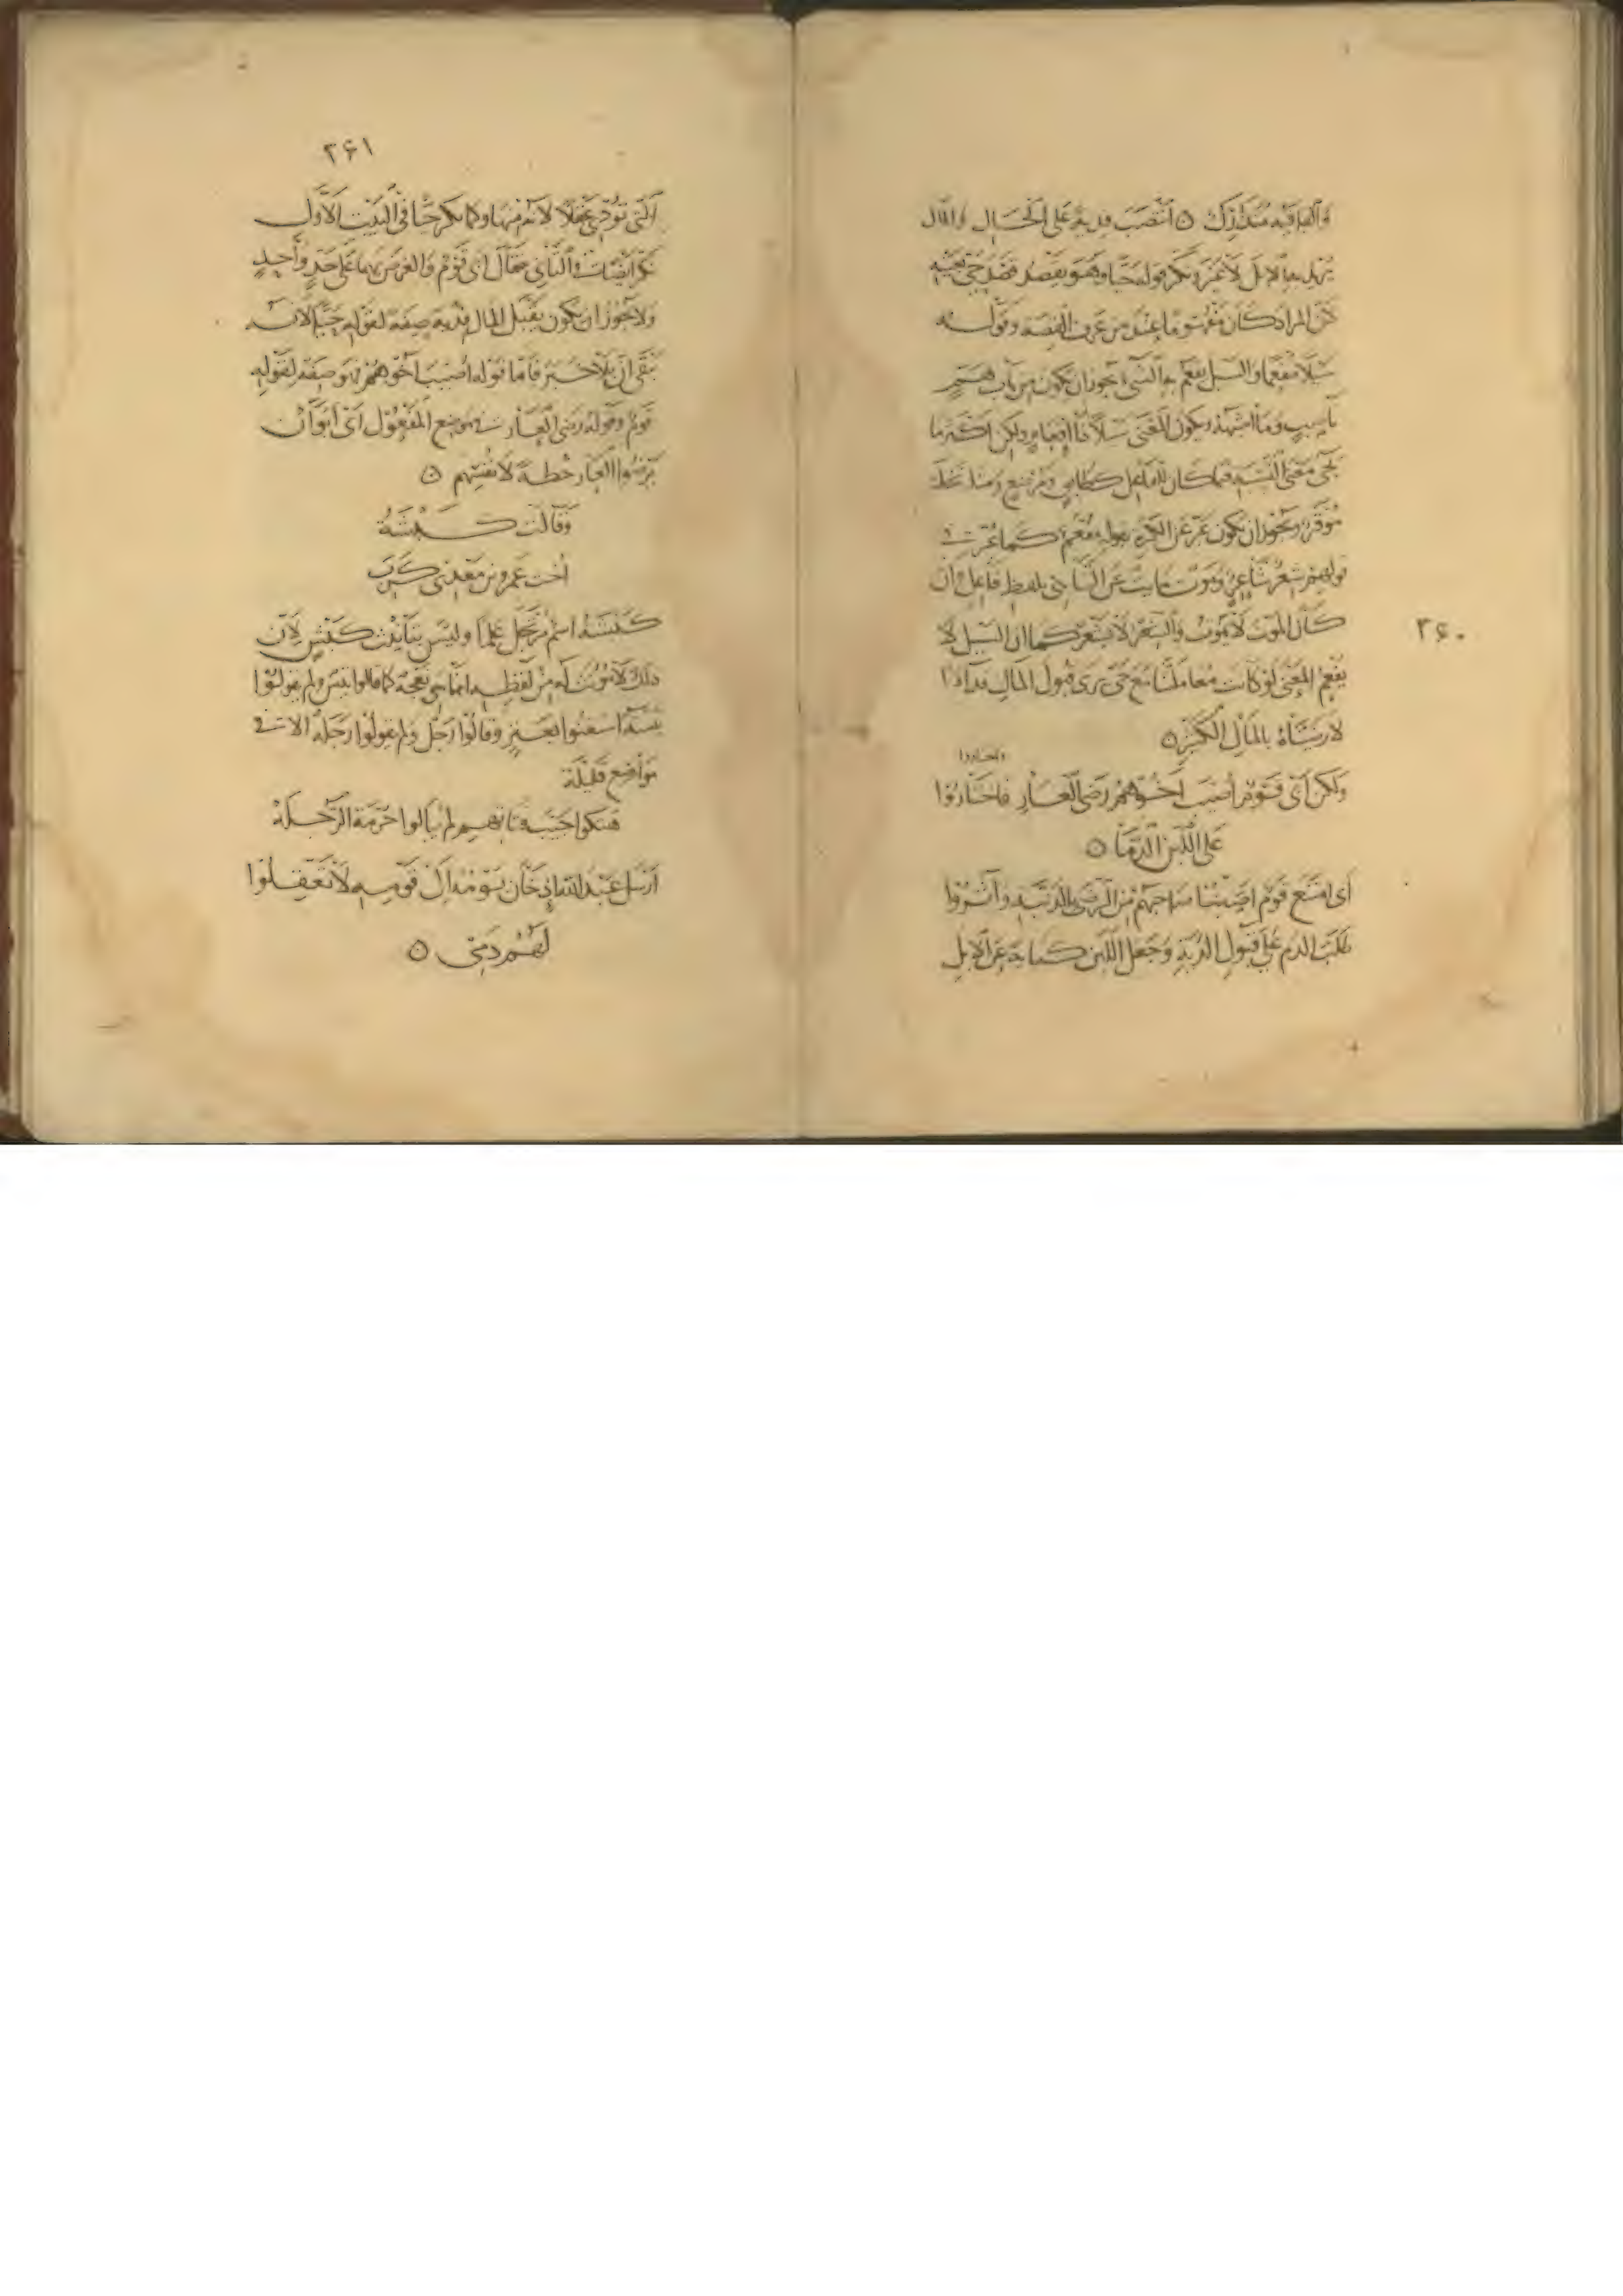 والقافية متدارك ٥ انتصب فدية على الحال والمال
يريد بها الابل لا غير ونكر قوله حيا وهو يقصد قصد حي بعينه
لان المراد كان مفهوما عند من عرف القصة وقوله
سيلا مفعما والسيل يفعم به الشيء يجوز ان يكون من باب هم
ناصب وما اشبهه ويكون المعنى سيلا ذا افعام ولكن اكثر ما
يجي معنى النسبة فيما كان للفاعل كطالق ومرضع ومثله نخلة
موقرة ويجوز ان يكون عبر عن الكثرة بقوله مفعم كما عبر في
قولهم شعر شاعر وموت مايت عن التناهي بلفظ فاعل وان
كان الموت لا يموت والشعر لا يشعر كما ان السيل لا
يفعم المعنى لو كانت معاملتنا مع حي يرى قبول المال فداء
لارضيناه بالمال الكثير ٥
ولكن ابى قوم اصيب اخوهم رضى العار فاختاروا
على اللبن الدما ٥
اى امتنع قوم اصبنا صاحبهم من الرضى بالدنية وآثروا
طلب الدم على قبول الدية وجعل اللبن كناية عن الابل
٢۶٠
٢۶١
التى تؤدى عقلا لانه منها وكما نكر حيا فى البيت الاول
نكر ايضا فى الثاني فقال ابى قوم والغرض بهما على حد واحد
ولا يجوز ان يكون يقبل المال فدية صفة لقوله حيا لانه
يبقى ان بلا خبر فاما قوله اصيب اخوهم فهو صفة لقوله
قوم وقوله رضى العار في موضع المفعول اى ابوا ان
يرضوا العار خطة لانفسهم ٥
وقالت كبشة
اخت عمرو بن معدي كرب
كبشة اسم مرتجل علما وليس بتأنيث كبش لان
ذلك لا مؤنث له من لفظه انما هي نعجة كما قالوا تيس ولم يقولوا
تيسة استغنوا بعنز وقالوا رجل ولم يقولوا رجلة الا في
مواضع قليلة
هتكوا جيب فتاتهم لم يبالوا حرمة الرجلة
ارسل عبد الله اذ حان يومه الى قومه لا تعقلوا
لهم دمي ٥